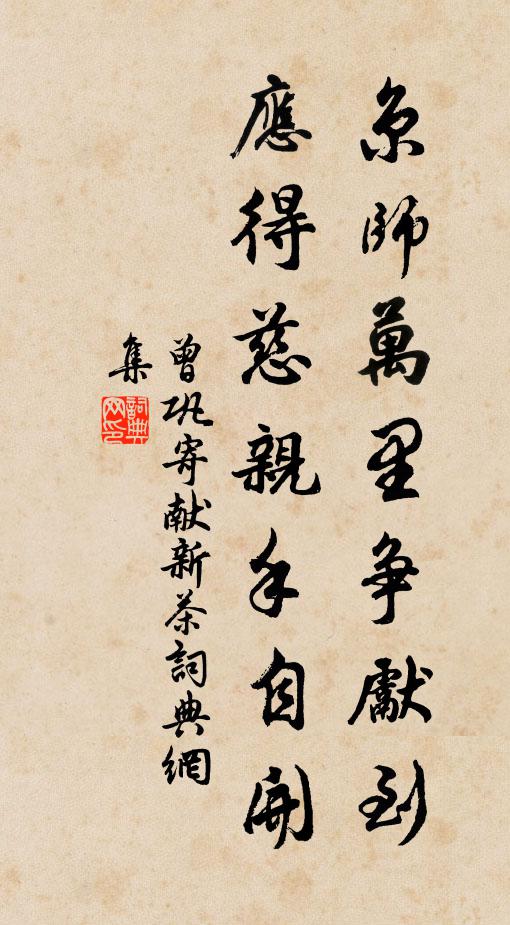 京師萬里争獻到
應得慈親手自開
曾巩寄献新茶詞典網
集
詞典网印